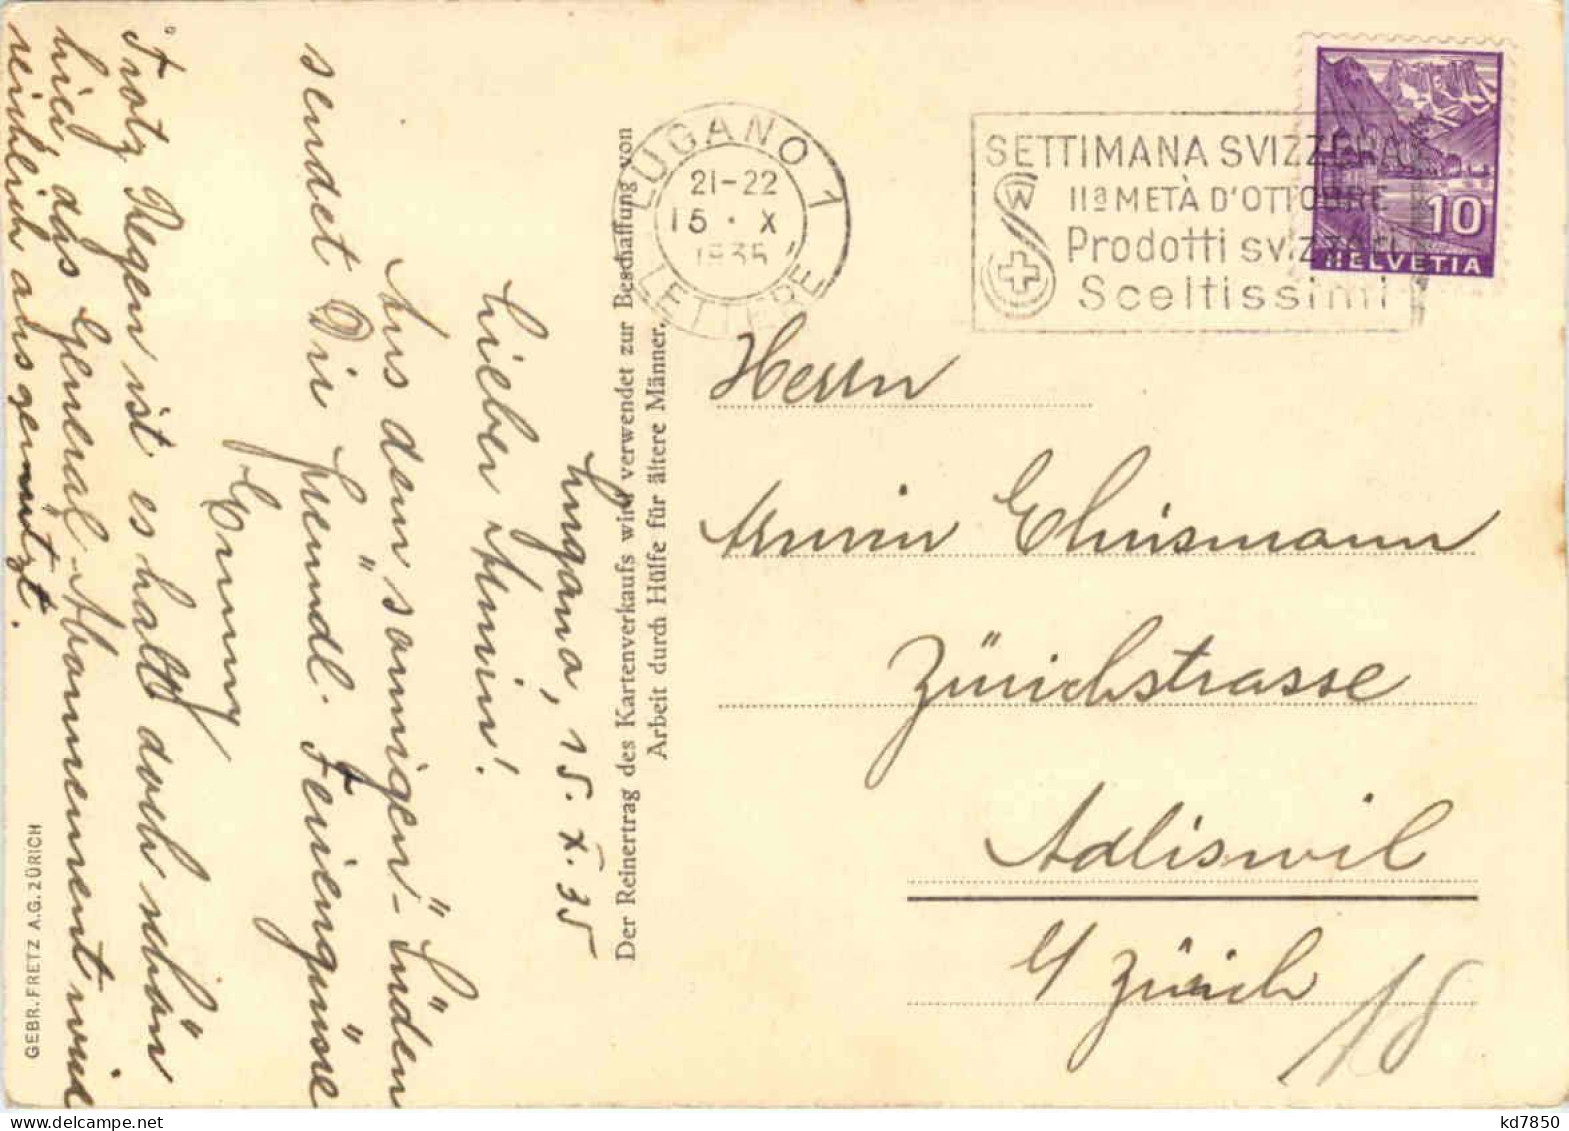 Lugano, 15. X. 35
Lieber Armin!
Aus dem "sonnigen" Süden
sendet Dir freundl. Feriengrüsse
Emmy
Trotz Regen ist es halt doch schön
hier, das General-Abonnement wird
reichlich ausgenützt.
GEBR. FRETZ A.G. ZÜRICH
Der Reinertrag des Kartenverkaufs wird verwendet zur Beschaffung von
Arbeit durch Hülfe für ältere Männer.
LUGANO 1
21-22
15 · X
1935
LETTERE
SETTIMANA SVIZZERA
IIª METÀ D'OTTOBRE
Prodotti svizzeri
Sceltissimi
10
HELVETIA
Herrn
Armin Ehrismann
Zürichstrasse
Adliswil
b/ Zürich
18
kd7850